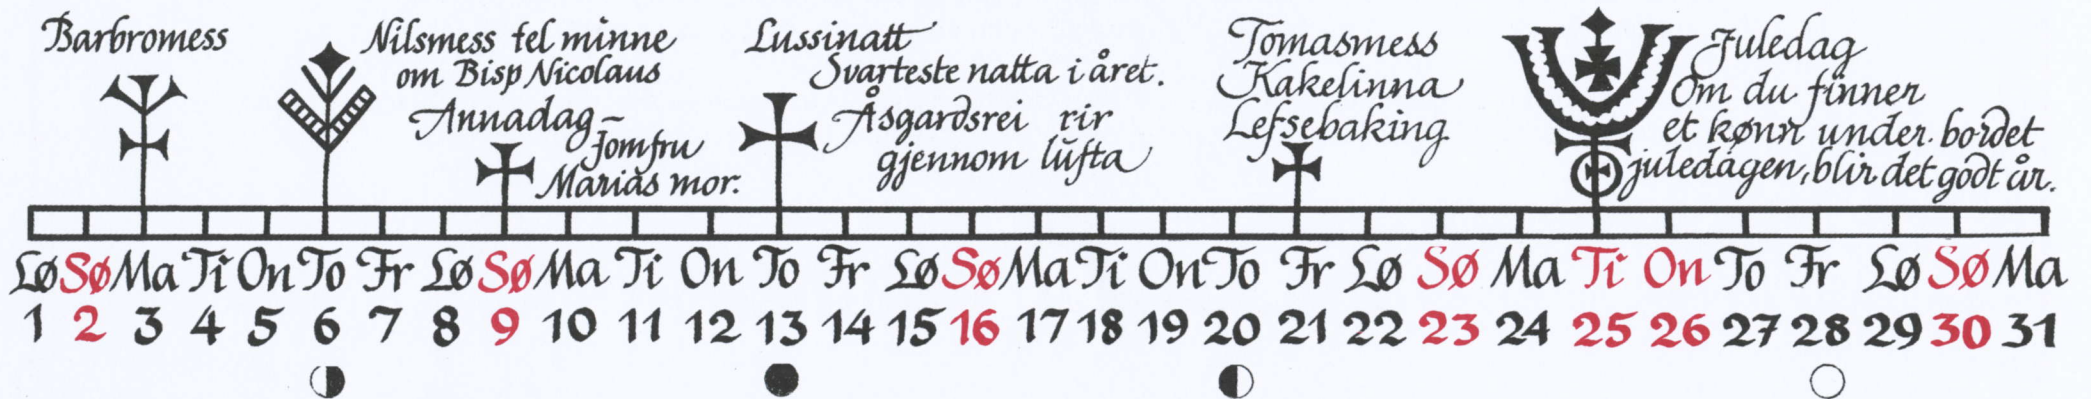 Barbromess
Nilsmess tel minne
om Bisp Nicolaus
Annadag –
Jomfru
Marias mor.
Lussinatt
Svarteste natta i året.
Åsgardsrei rir
gjennom lufta
Tomasmess
Kakelinna
Lefsebaking
Juledag
Om du finner
et kønn under bordet
juledagen, blir det godt år.
Lø Sø Ma Ti On To Fr Lø Sø Ma Ti On To Fr Lø Sø Ma Ti On To Fr Lø Sø Ma Ti On To Fr Lø Sø Ma
1 2 3 4 5 6 7 8 9 10 11 12 13 14 15 16 17 18 19 20 21 22 23 24 25 26 27 28 29 30 31